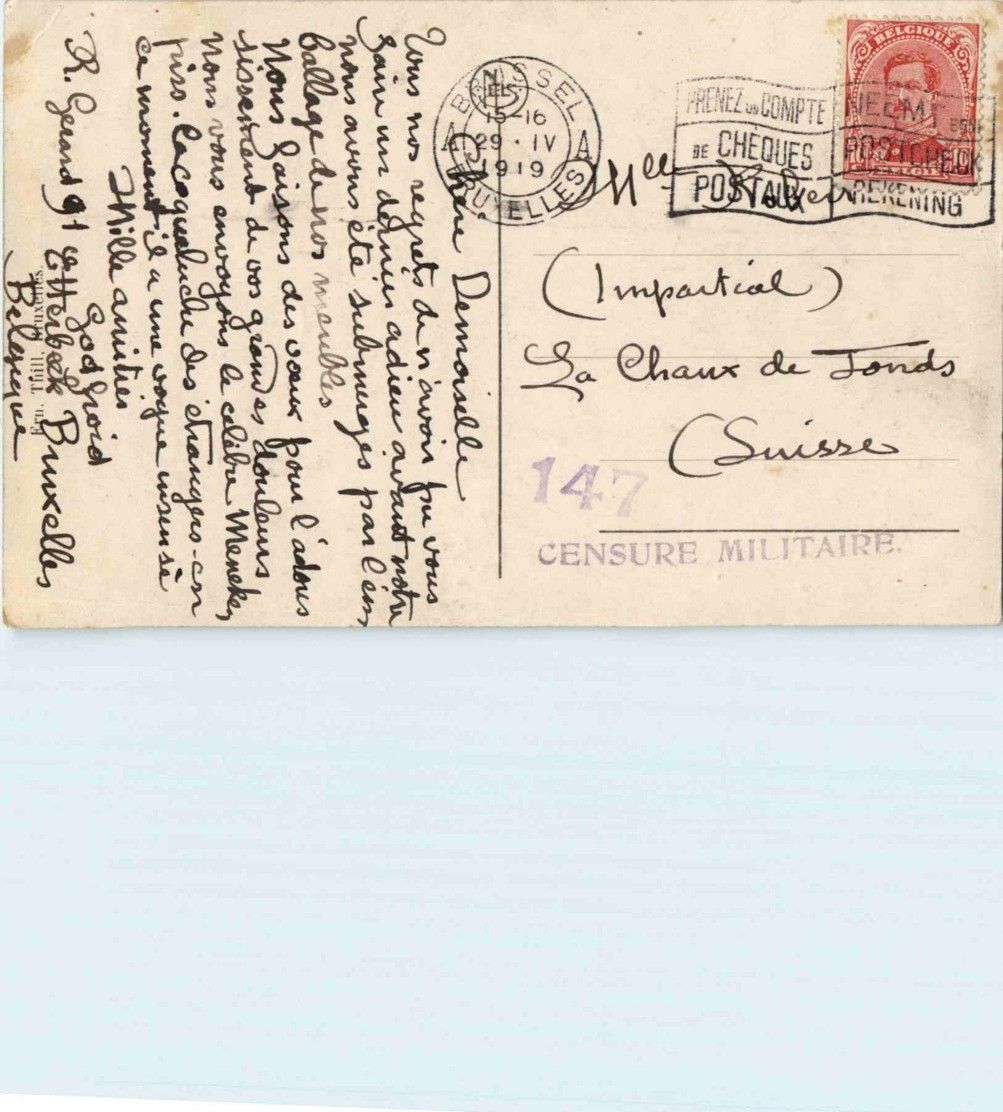 Chère Demoiselle
Tous nos regrets de n'avoir pu vous
faire un dernier adieu avant notre
nous avons été submergés par l'em
ballage de nos meubles
Nous faisons des vœux pour l'adous
sissement de vos grandes douleurs
Nous vous envoyons le célèbre Meneken
piss. La coqueluche des étrangers - en
ce moment il a une vogue insensée
Mille amitiés
Godfroid
R. Gérard 91 ce Etterbeek Bruxelles
Belgique
BRUSSEL
15-16
29 · IV
1919
A A
BRUXELLES
PRENEZ UN COMPTE
DE CHÈQUES
POSTAUX
NEEMT EENE
POSTCHECK
REKENING
BELGIQUE
BELGIË
Mlle
(Impartial)
La Chaux de Fonds
(Suisse
147
CENSURE MILITAIRE.